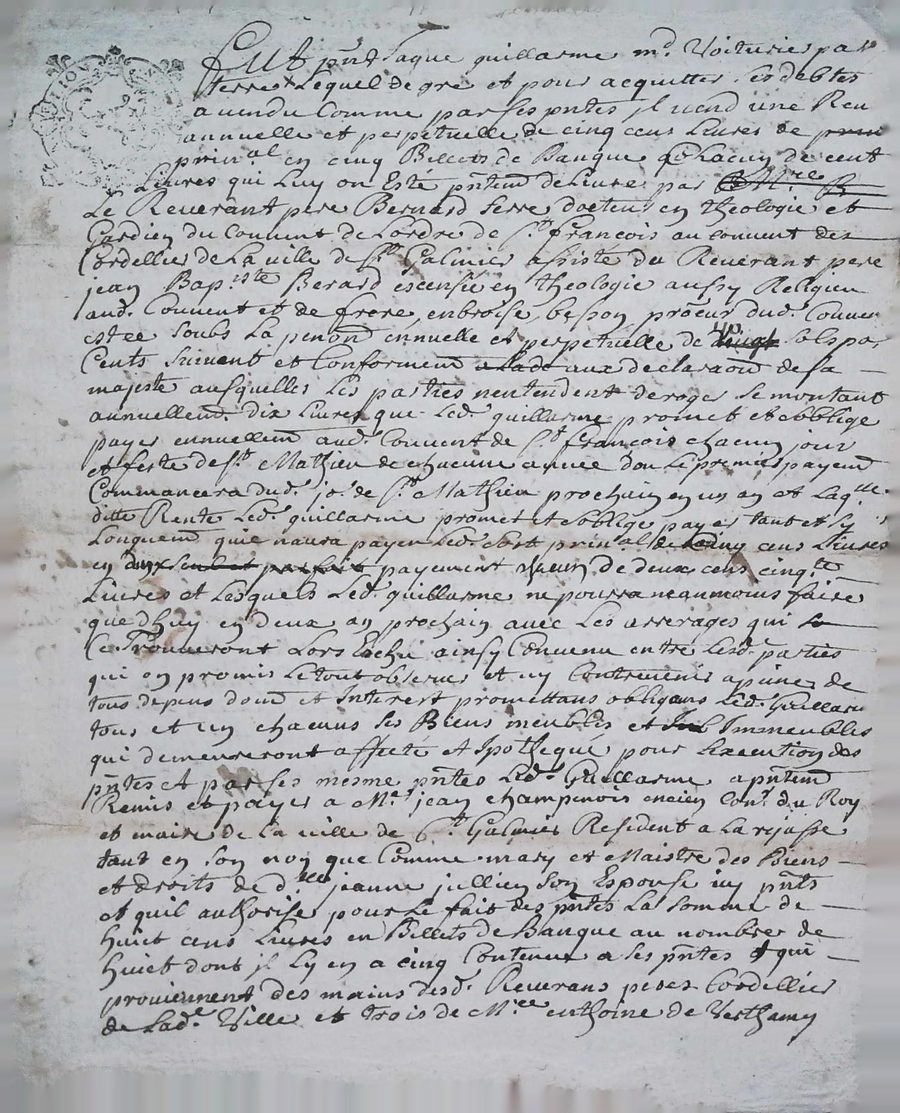 Fut pnt Jaque guillarme md. Voiturier par
terre Lequel de gre et pour acquitter ses debtes
a vendu Comme par ses pntes jl vend une Ren
annuelle et perpetuelle de cinq cens Livres de
prinal en cinq Billets de Banque Chacun de cent
Livres qui Luy on Esté pntem delivre par
Le Reverant pere Bernard Serre docteur en theologie et
Gardien du Convent de Lordre de St. francois au convent des
Cordellier de La ville de St Galmier assisté du Reverant pere
jean Bapiste Berard escensié en theologie aussy Religieu
aud. Convent et de frere enbroise besson procur dud. Conven
est ce soubs La penon ennuelle et perpetuelle de sols par
Cents suivent et Conformem aux declaraon de sa
majeste ausquelles Les parties nentendent deroger se montant
annuellemt. dix Livres que Led. guillarme promet et oblige
payer ennuellem aud. Convent de St francois chacun jour
et feste de St. Mathieu de chacune annee don Le premier payem
Commancera dud. jor. de St. Mathieu prochain en un an et Laqlle.
ditte Rente Led. guillarme promet et soblige payer tant et sy
Longuem quil naura payer Led. sort prinal de cens Livres
en payement de deux cens cinqte
Livres et Lesquels Led. guillarme ne pourra neanmoins faire
que dhuy en deux an prochain avec Les arrerages qui
Ce Trouveront Lors Eschu ainsy Convenu entre Lesd. parties
qui on promis Le tout observer et ny Contrevenir a pine de
tous depens dom et Interest promettans obligans Led. Guillarm
tous et un chacuns ses Biens meubles et Immeubles
qui demeureront affecte et Ipotheque pour Lexecution des
pntes et par ses mesme pntes Led. Guillarme a pntem
Remis et payer a Me. jean champenois encien Conr. du Roy
et maire de La ville de St Galmier Resident a La rejasse
tant en son non que Comme mary et Maistre des Biens
et droits de dlle jeanne jullien son Espouse icy pnts
et quil authorise pour Le fait des pntes La somme de
huict cens Livres en Billets de Banque au nombre de
huict dont jl Ly en a cinq Contenue a les pntes et qui
proviennent des mains desd. Reverans peres Cordellier
de Lade. Ville et trois de Mree enthoine de Verthamy